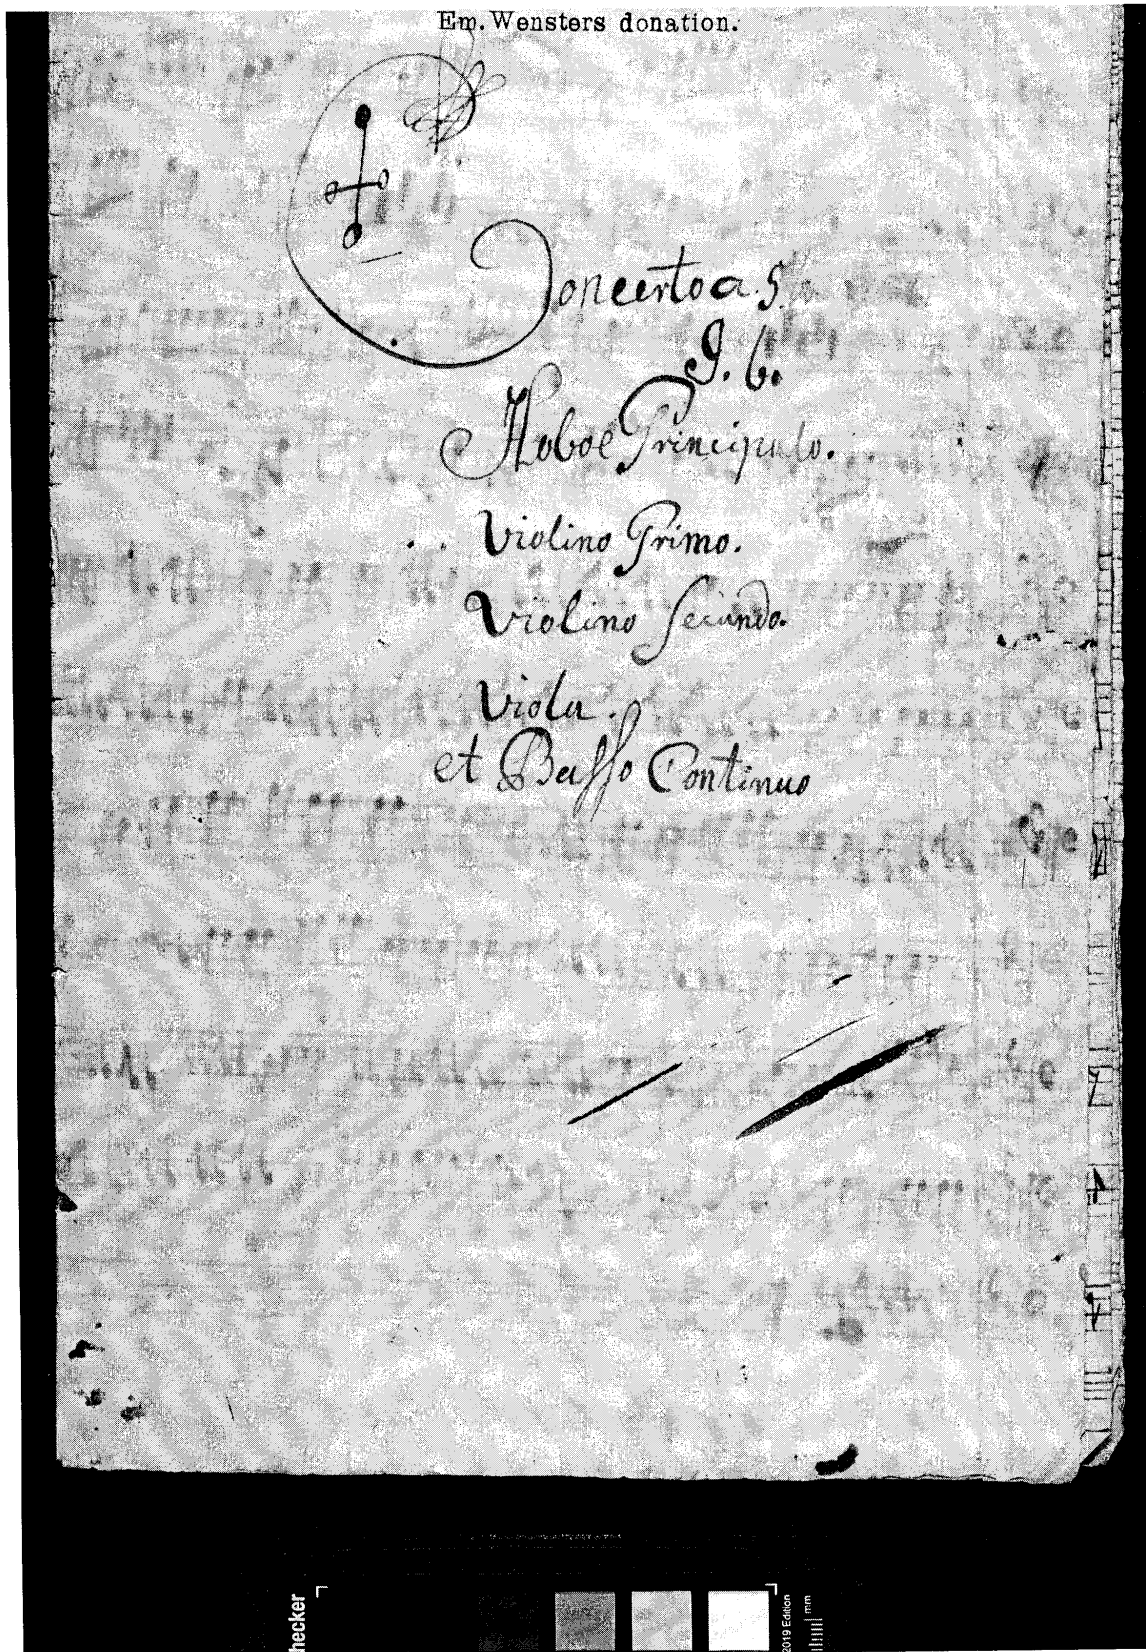 Em. Wensters donation.
Concerto a. 5
G. b.
Hoboe Principalo.
Violino Primo.
Violino Secundo.
Viola.
et Basso Continuo
hecker
2019 Edition
mm